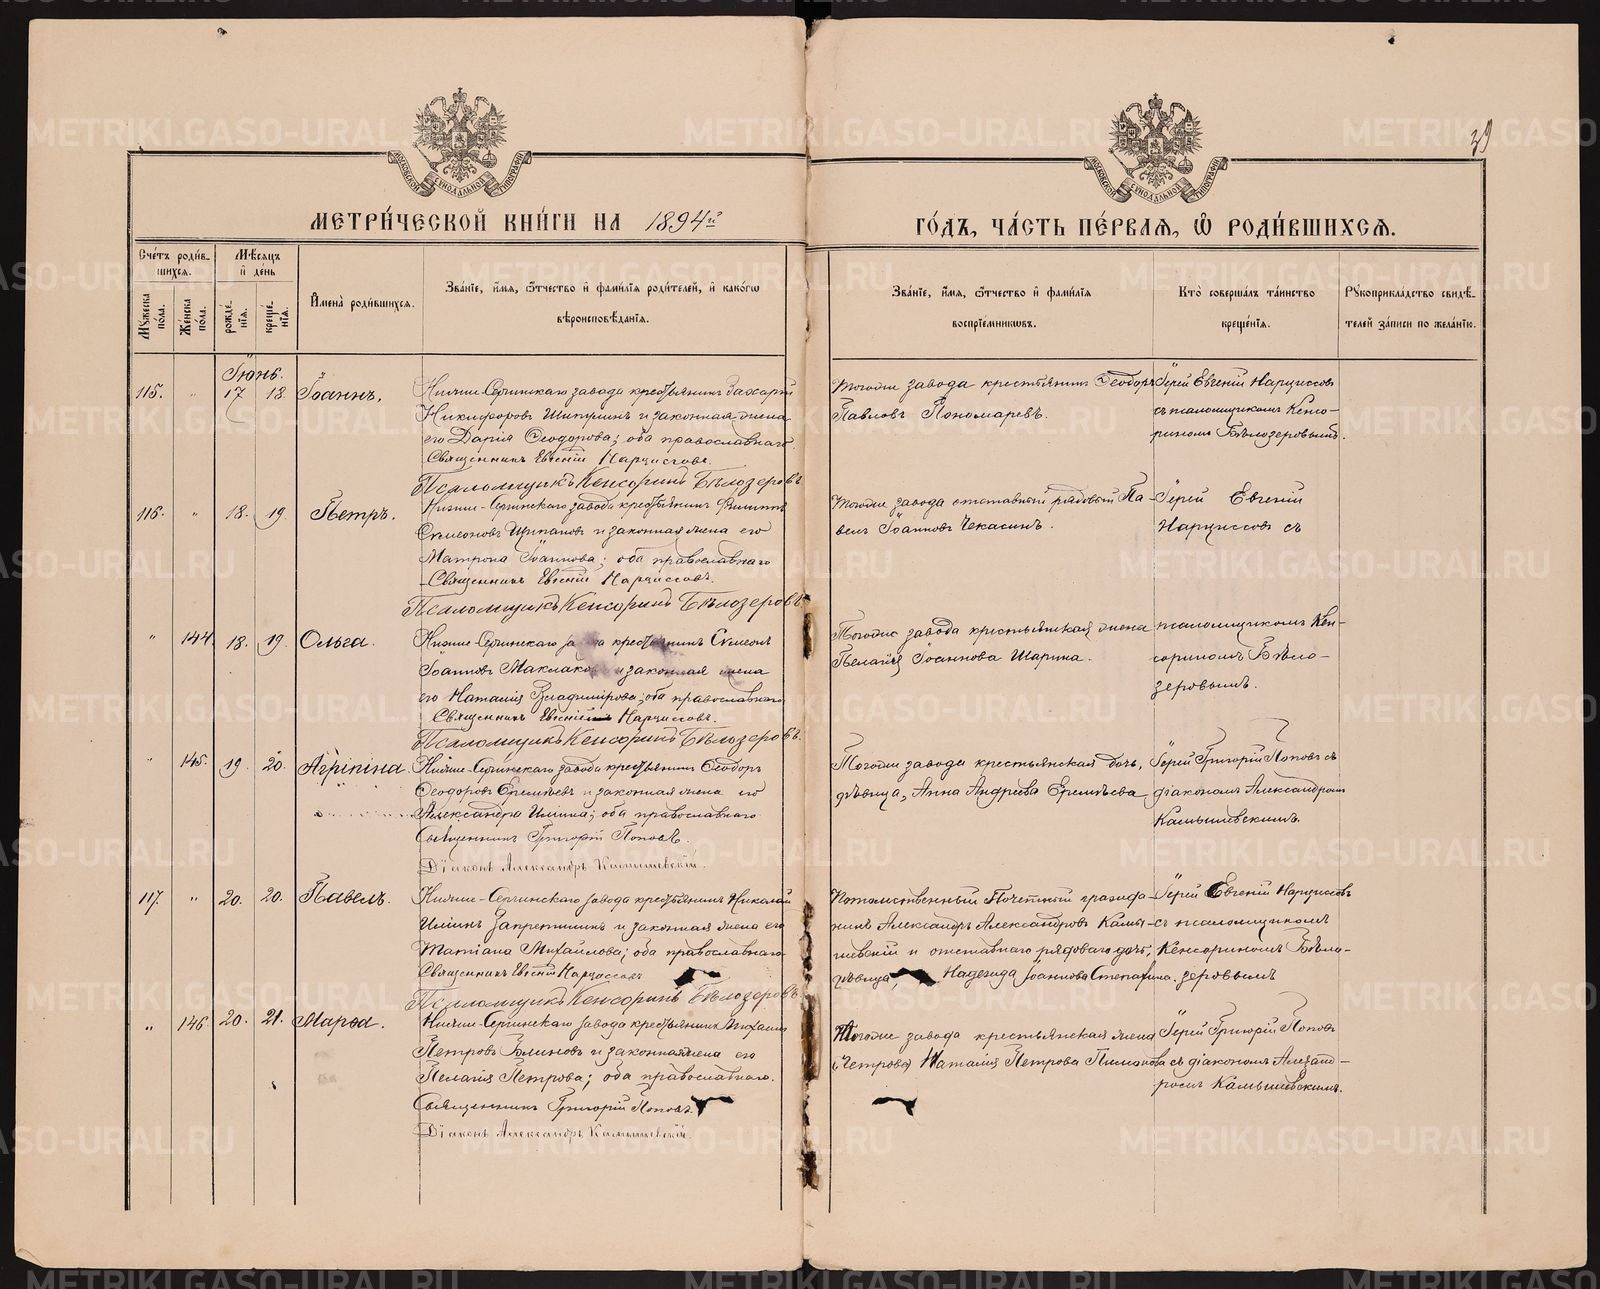 39
МОСКОВСКОЙ СѴНОДАЛЬНОЙ ТИПОГРАФІИ
МОСКОВСКОЙ СѴНОДАЛЬНОЙ ТИПОГРАФІИ
МЕТРИ́ЧЕСКОЙ КНИ́ГИ НА 1894й
ГО́ДЪ, ЧА́СТЬ ПЕ́РВАѦ, Ѡ҆ РОДИ́ВШИХСѦ.
Сче́тъ роди́в-
шихсѧ.
Мꙋ́жеска по́ла.
Же́нска по́ла.
Мѣ́сѧцъ
и҆ де́нь
рожде́-нїѧ.
креще́-нїѧ.
И҆мена̀ роди́вшихсѧ.
Зва́нїе, и҆́мѧ, ѻ҆́тчество и҆ фами́лїѧ роди́телей, и҆ како́гѡ
вѣроисповѣ́данїѧ.
Зва́нїе, и҆́мѧ, ѻ҆́тчество и҆ фами́лїѧ
воспрїе́мникѡвъ.
Кто̀ соверша́лъ та́инство
креще́нїѧ.
Рꙋкоприкла́дство свидѣ́-
телей за́писи по жела́нїю.
Іюнь.
115. " 17 18. Іоаннъ.
Нижне-Сергинскаго завода крестьянинъ Захарій
Никифоровъ Шипулинъ и законная жена
его Дарія Ѳеодорова; оба православнаго
Священникъ Евгеній Нарциссовъ.
Псаломщикъ Кенсоринъ Бѣлозеровъ
Тогоже завода крестьянинъ Ѳеодоръ
Павловъ Пономаревъ.
Іерей Евгеній Нарциссовъ
съ псаломщикомъ Кенсо-
риномъ Бѣлозеровымъ.
116. " 18. 19. Петръ.
Нижне-Сергинскаго завода крестьянинъ Филиппъ
Симеоновъ Щипановъ и законная жена его
Матрона Іоаннова; оба православнаго
Священникъ Евгеній Нарциссовъ.
Псаломщикъ Кенсоринъ Бѣлозеровъ.
Тогоже завода отставный рядовый Па-
велъ Іоанновъ Чекасинъ.
Іерей Евгеній
Нарциссовъ съ
" 144. 18. 19. Ольга.
Нижне-Сергинскаго завода крестьянинъ Симеонъ
Іоанновъ Маклаковъ и законная жена
его Наталія Владимірова; оба православнаго
Священникъ Евгеній Нарциссовъ.
Псаломщикъ Кенсоринъ Бѣлозеровъ.
Тогоже завода крестьянская жена
Пелагія Іоаннова Шарина.
псаломщикомъ Кен-
сориномъ Бѣло-
зеровымъ.
" 145. 19. 20. Агрипина.
Нижне-Сергинскаго завода крестьянинъ Ѳеодоръ
Ѳеодоровъ Еремѣевъ и законная жена его
Александра Ильина; оба православнаго
Священникъ Григорій Поповъ.
Діаконъ Александръ Камышевскій.
Тогоже завода крестьянская дочь,
дѣвица, Анна Андреева Еремѣева
Іерей Григорій Поповъ съ
діакономъ Александромъ
Камышевскимъ.
117. " 20. 20. Павелъ.
Нижне-Сергинскаго завода крестьянинъ Николай
Ильинъ Запретилинъ и законная жена его
Татіана Михайлова; оба православнаго
Священникъ Евгеній Нарциссовъ
Псаломщикъ Кенсоринъ Бѣлозеровъ.
Потомственный Почетный гражда-
нинъ Александръ Александровъ Камы-
шевскій и отставнаго рядоваго дочь,
дѣвица, Надежда Іоаннова Степанина.
Іерей Евгеній Нарциссовъ
съ псаломщикомъ
Кенсориномъ Бѣло-
зеровымъ
" 146. 20. 21. Марѳа.
Нижне-Сергинскаго завода крестьянинъ Михаилъ
Петровъ Блиновъ и законная жена его
Пелагія Петрова; оба православнаго.
Священникъ Григорій Поповъ.
Діаконъ Александръ Камышевскій.
Тогоже завода крестьянская жена
Наталія Петрова
Іерей Григорій Поповъ
съ діакономъ Александ-
ромъ Камышевскимъ.
METRIKI.GASO-URAL.RU